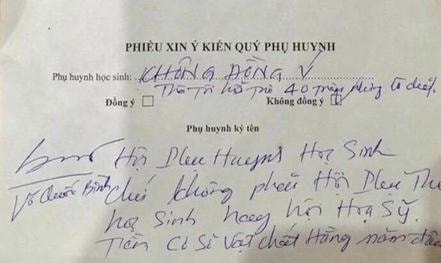 PHIẾU XIN Ý KIẾN QUÝ PHỤ HUYNH
Phụ huynh học sinh: KHÔNG ĐỒNG Ý
Hỗ Trợ 40 Triệu
Đồng ý Không đồng ý
Phụ huynh ký tên
Hội Phụ Huynh Học Sinh
Võ Quốc Bình chứ không phải Hội Phụ Thu
học Sinh hay hội Họa Sỹ.
Tiền Cơ Sở Vật chất Hằng năm đâu